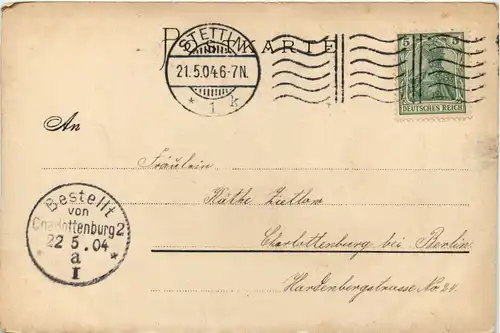 POSTKARTE
STETTIN
21.5.04.6-7N.
* 1 k
5 5
DEUTSCHES REICH
An
Fräulein
Käthe Zutlow
Charlottenburg bei Berlin
Hardenbergstrasse No. 24.
Bestellt
von
Charlottenburg 2
22 5.04
* a *
I